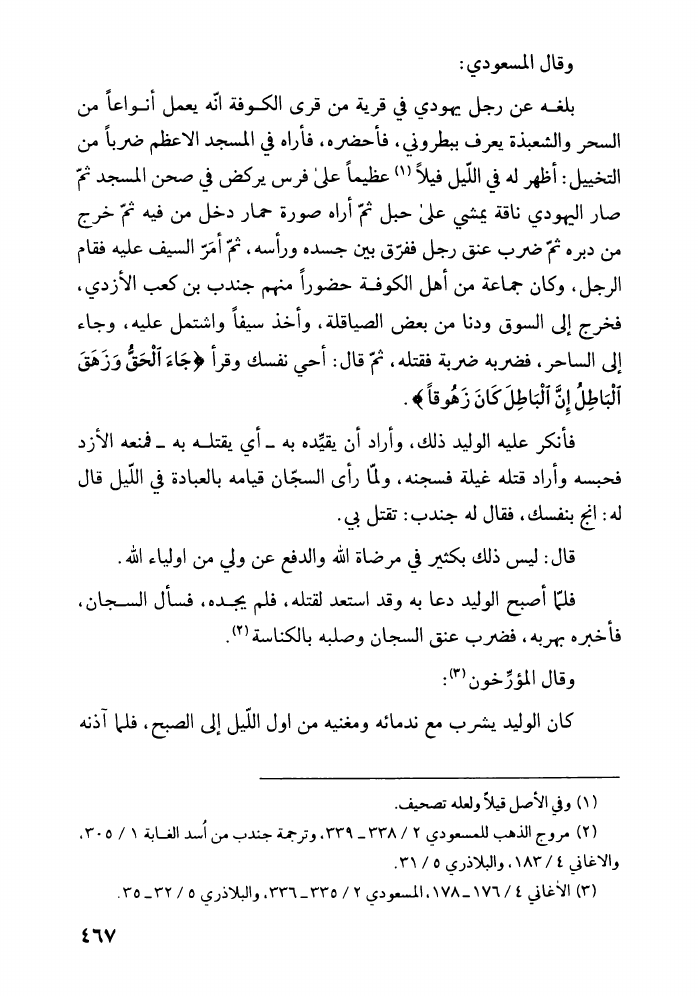 وقال المسعودي:
بلغـه عن رجل يهودي في قرية من قرى الكـوفة انّه يعمل أنـواعاً من
السحر والشعبذة يعرف ببطروني، فأحضره، فأراه في المسجد الاعظم ضرباً من
التخييل: أظهر له في اللّيل فيلاً (١) عظيماً على فرس يركض في صحن المسجد ثمّ
صار اليهودي ناقة يمشي على حبل ثمّ أراه صورة حمار دخل من فيه ثمّ خرج
من دبره ثمّ ضرب عنق رجل ففرّق بين جسده ورأسه، ثمّ أمَرّ السيف عليه فقام
الرجل، وكان جماعة من أهل الكوفـة حضوراً منهم جندب بن كعب الأزدي،
فخرج إلى السوق ودنا من بعض الصياقلة، وأخذ سيفاً واشتمل عليه، وجاء
إلى الساحر، فضربه ضربة فقتله، ثمّ قال: أحي نفسك وقرأ ﴿جَاءَ ٱلْحَقُّ وَزَهَقَ
ٱلْبَاطِلُ إِنَّ ٱلْبَاطِلَ كَانَ زَهُوقاً﴾.
فأنكر عليه الوليد ذلك، وأراد أن يقيِّده به ـ أي يقتلـه به ـ فمنعه الأزد
فحبسه وأراد قتله غيلة فسجنه، ولمّا رأى السجّان قيامه بالعبادة في اللّيل قال
له: انج بنفسك، فقال له جندب: تقتل بي.
قال: ليس ذلك بكثير في مرضاة الله والدفع عن ولي من اولياء الله.
فلمّا أصبح الوليد دعا به وقد استعد لقتله، فلم يجـده، فسأل السـجان،
فأخبره بهربه، فضرب عنق السجان وصلبه بالكناسة (٢).
وقال المؤرِّخون (٣):
كان الوليد يشرب مع ندمائه ومغنيه من اول اللّيل إلى الصبح، فلما آذنه
(١) وفي الأصل قيلاً ولعله تصحيف.
(٢) مروج الذهب للمسعودي ٢ / ٣٣٨ ـ ٣٣٩، وترجمة جندب من أُسد الغـابة ١ / ٣٠٥،
والاغاني ٤ / ١٨٣، والبلاذري ٥ / ٣١.
(٣) الأغاني ٤ / ١٧٦ ـ ١٧٨، المسعودي ٢ / ٣٣٥ ـ ٣٣٦، والبلاذري ٥ / ٣٢ ـ ٣٥.
٤٦٧